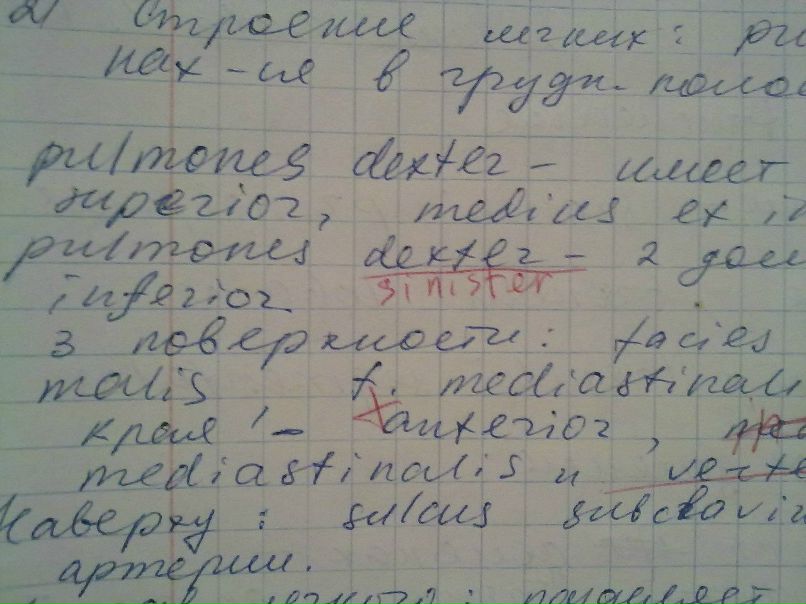 2) Строение легких: pu
нах-ся в грудн. полос
pulmones dexter – имеет
superior, medius ex in
pulmones dexter – 2 дол
sinister
inferior
3 поверхности: facies
malis f. mediastinali
края – anterior,
mediastinalis и verte
Наверху: sulcus subclavi
артерии.
легкого: попадает